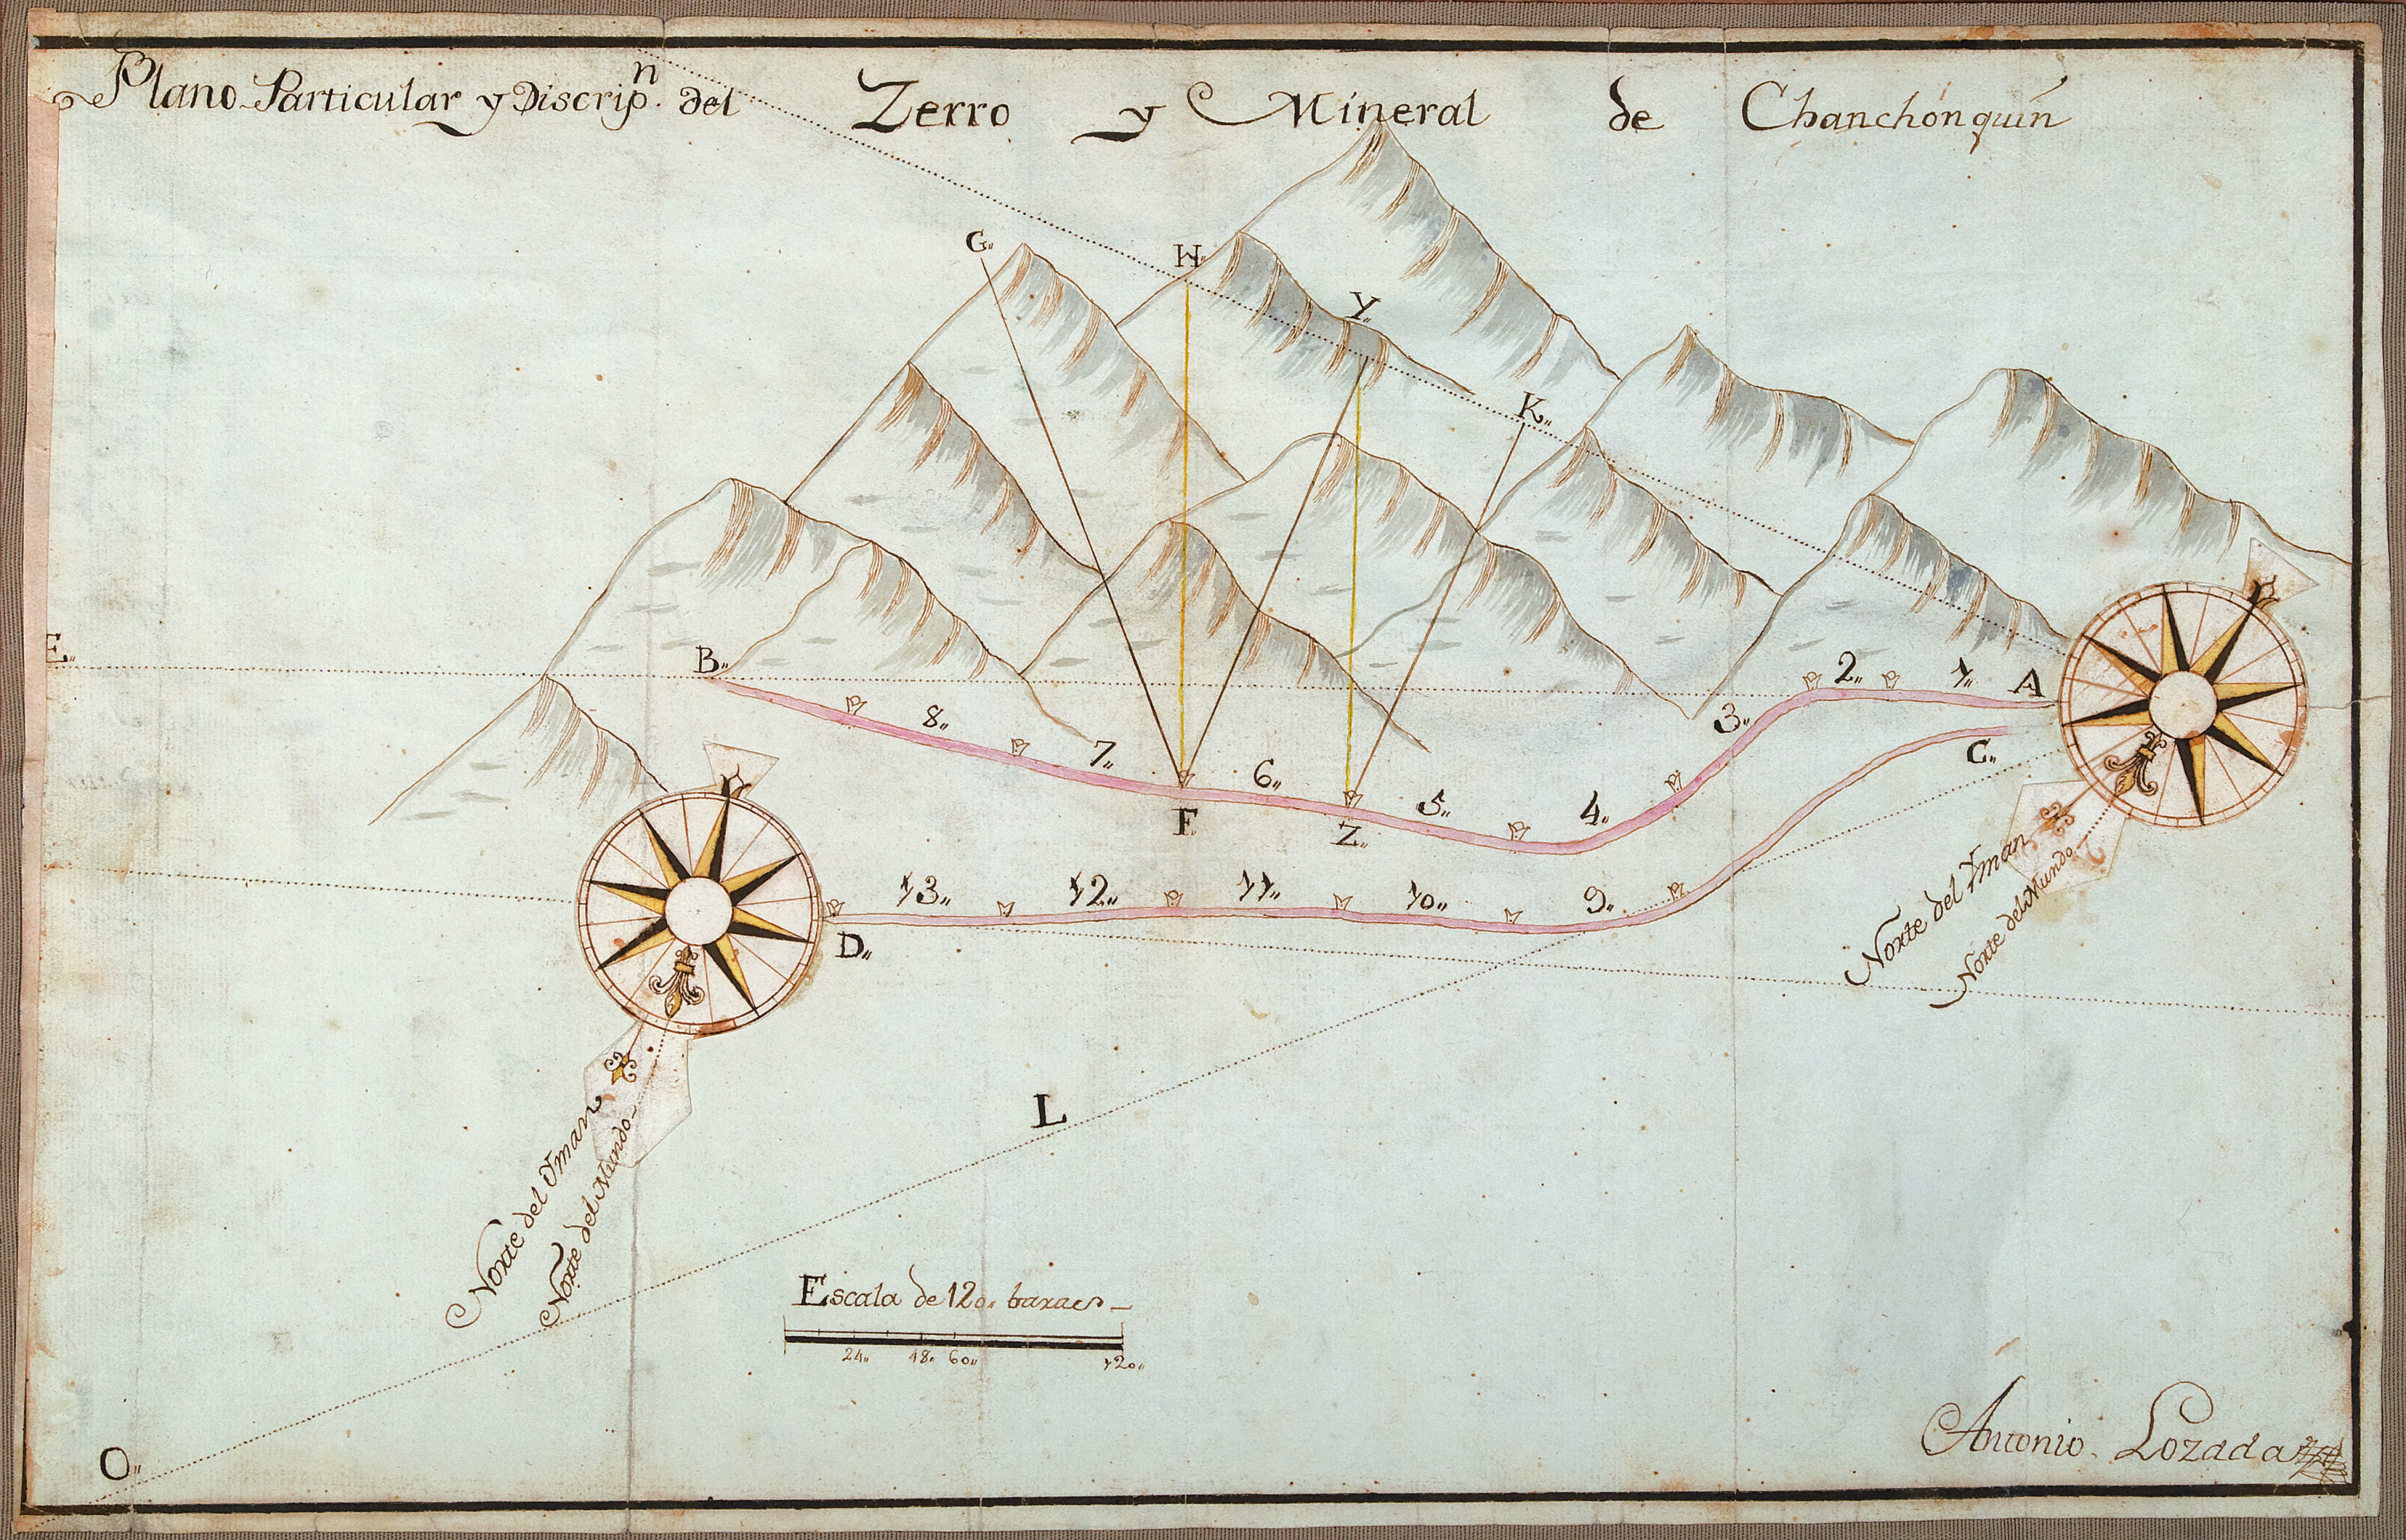 Plano Particular y Discripn. del Zerro y Mineral de Chanchónquin
G.
H.
Y.
K.
E.
B.
2.. 1..
A
3..
8..
7..
6..
5..
4..
C..
F.
Z..
13.. 12.. 11.. 10.. 9..
D..
Norte del Yman
Norte del Mundo
L
Norte del Yman
Norte del Mundo
Escala de 120.. baras
24.. 48.. 60.. 120..
O..
Antonio Lozada